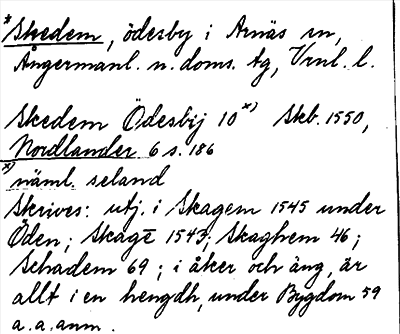 *Skedem, ödesby i Arnäs sn,
Ångermanl. n. doms. tg, Vrnl. l.
Skedem Ödesbij 10 x) Skb. 1550,
Nordlander 6 s. 186
x) näml. seland
Skrives: utj. i Skagem 1545 under
Öden; Skagē 1543; Skaghem 46;
Schadem 69; i åker och äng, är
allt i en hengdh, under Bygdom 59
a.a.anm.